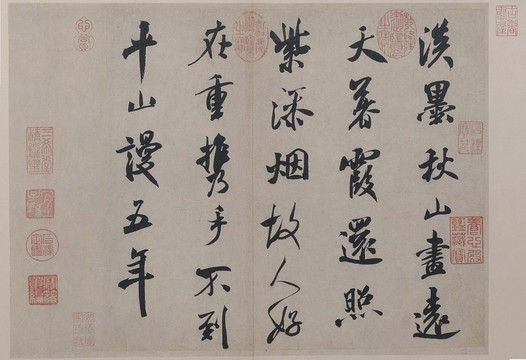 淡墨秋山畫遠
天暮霞還照
紫添烟故人好
在重攜手不到
平山謾五年